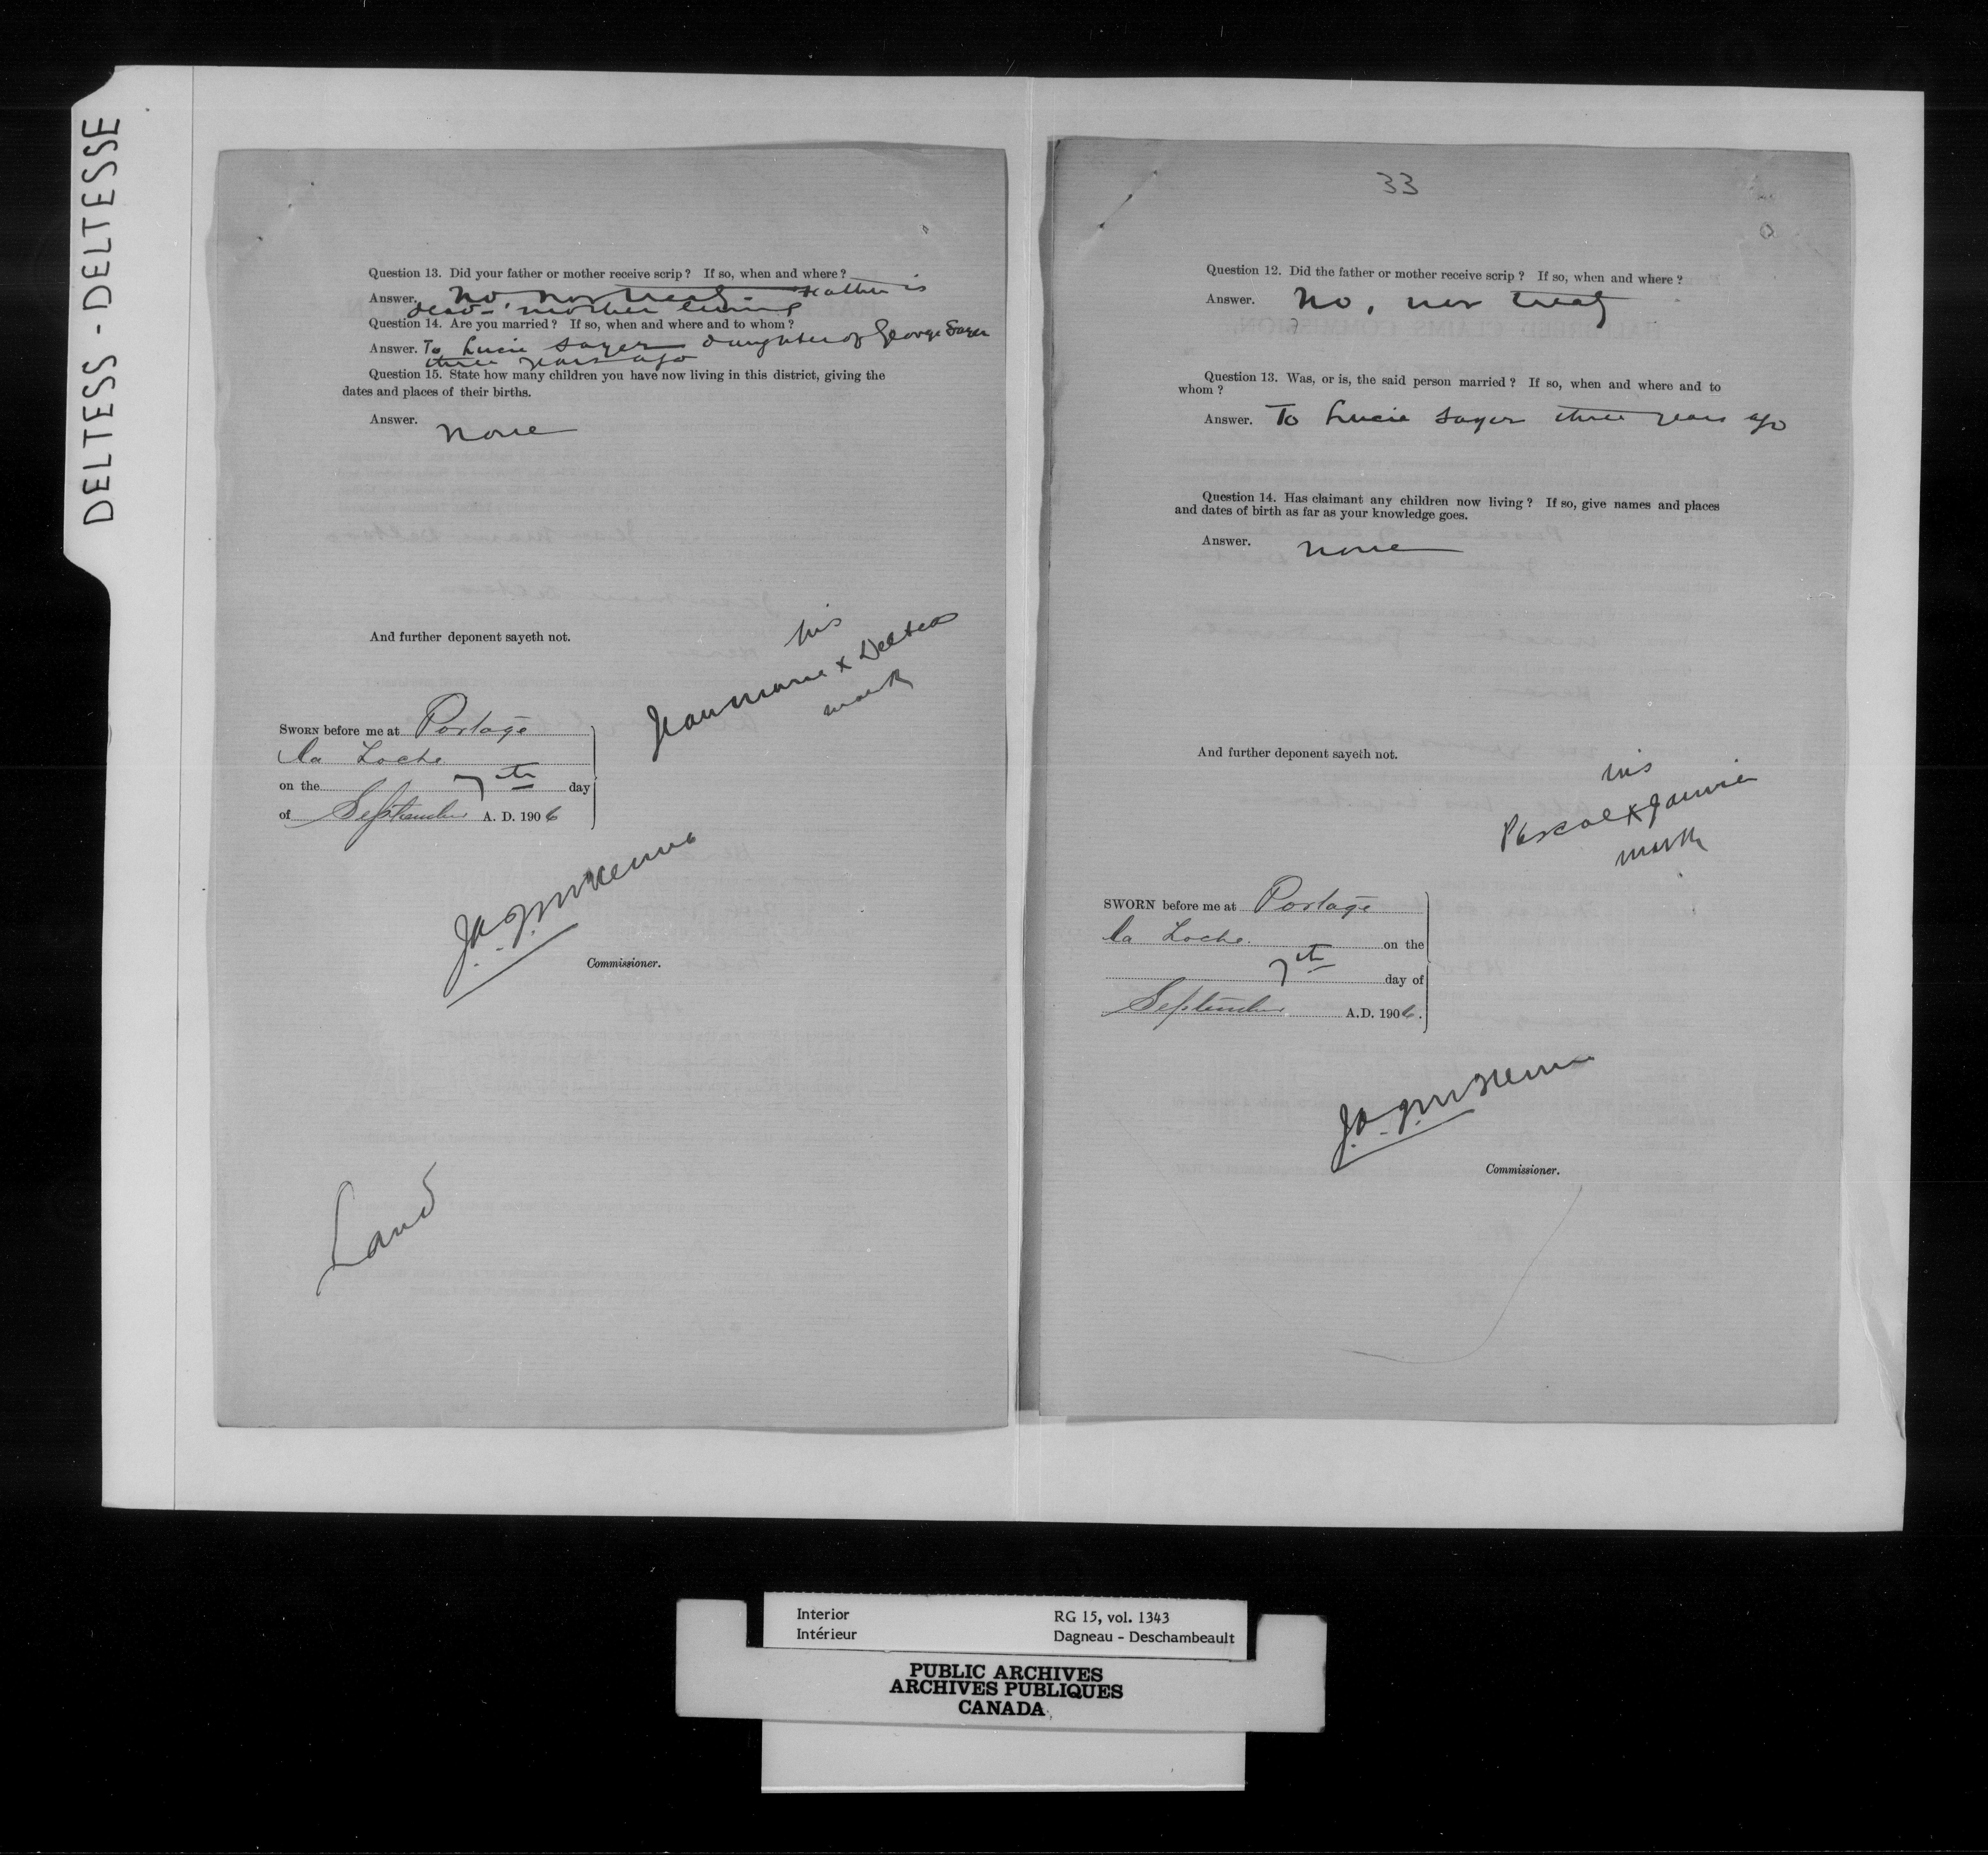 DELTESS - DELTESSE
Question 13. Did your father or mother receive scrip ? If so, when and where ?
Answer. No, nor treaty. Father is
dead - mother living
Question 14. Are you married ? If so, when and where and to whom ?
Answer. To Lucie Sayer daughter of George Sayer
three years ago
Question 15. State how many children you have now living in this district, giving the
dates and places of their births.
Answer. None
And further deponent sayeth not.
his
Jean Marie x Deltess
mark
SWORN before me at Portage
la Loche
on the 7th day
of September A. D. 1906
Commissioner.
Land
33
Question 12. Did the father or mother receive scrip ? If so, when and where ?
Answer. No, nor treaty
Question 13. Was, or is, the said person married ? If so, when and where and to
whom ?
Answer. To Lucie Sayer three years ago
Question 14. Has claimant any children now living ? If so, give names and places
and dates of birth as far as your knowledge goes.
Answer. None
And further deponent sayeth not.
his
Pascal x Janvier
mark
SWORN before me at Portage
la Loche on the
7th day of
September A.D. 1906.
Commissioner.
Interior
Intérieur
RG 15, vol. 1343
Dagneau - Deschambeault
PUBLIC ARCHIVES
ARCHIVES PUBLIQUES
CANADA